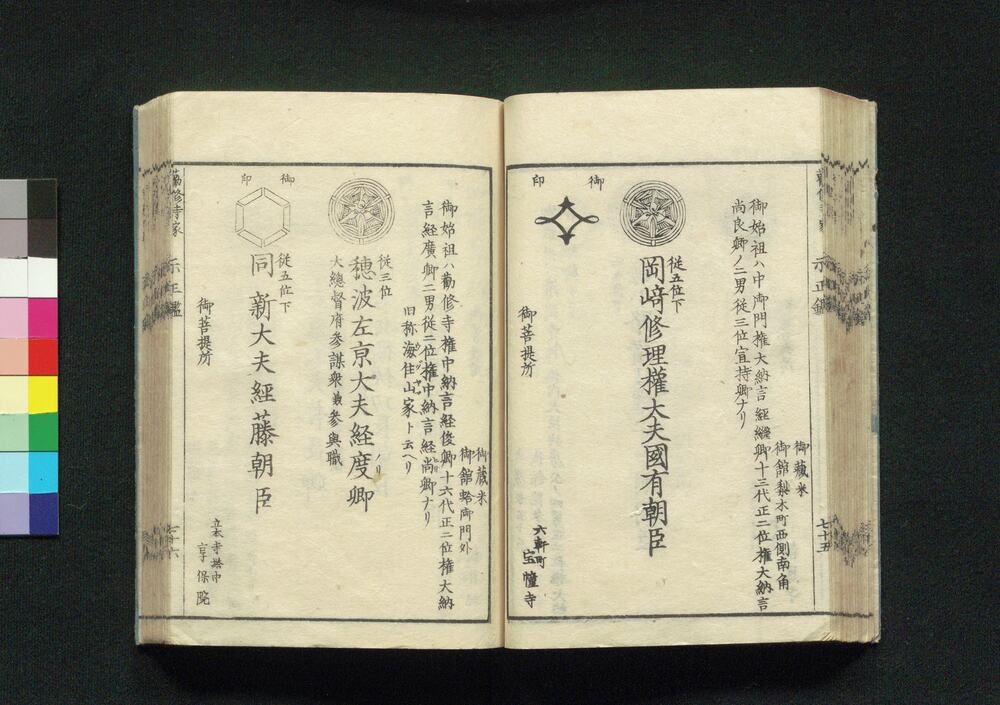 七十五
御蔵米
御館梨木町西側南角
御始祖ハ中御門権大納言経継卿十三代正二位権大納言
尚良卿ノ二男従三位宣持卿ナリ
従五位下
岡﨑修理權大夫國有朝臣
御印
御菩提所
六軒町
宝幢寺
御蔵米
御館蛤御門外
御始祖ハ勸修寺権中納言経俊卿十六代正二位権大納
言経廣卿二男従二位権中納言経尚卿ナリ
旧称海住山家ト云ヘリ
従三位
穂波左京大夫経度卿
大總督府参謀衆兼参與職
従五位下
同新大夫経藤朝臣
御印
御菩提所
立本寺塔中
享保院
勸修寺家
示正鑑
七十六